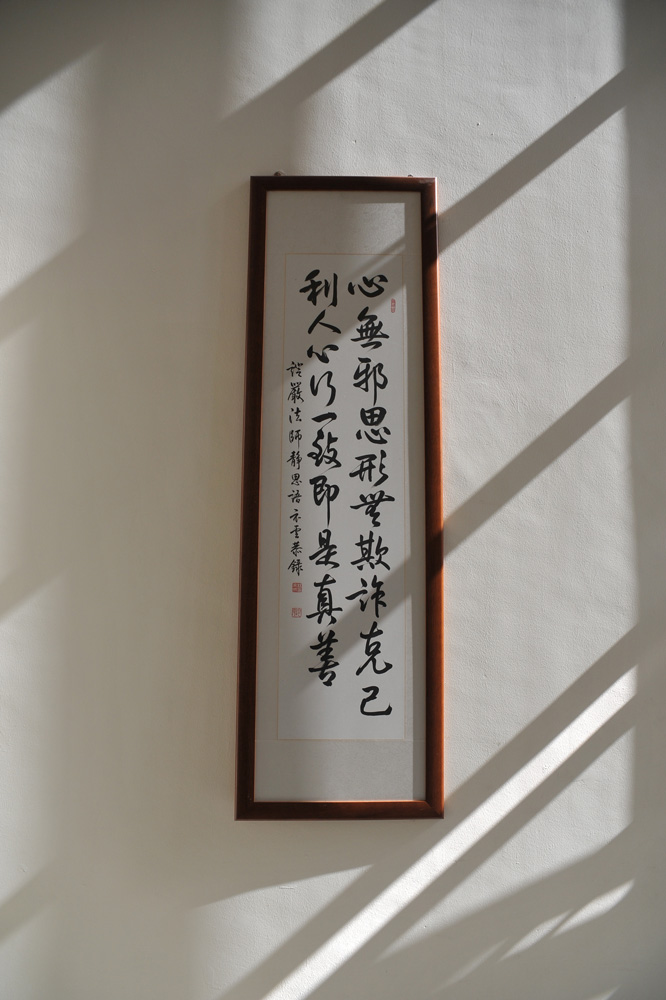 心無邪思形無欺詐克己
利人心行一致即是真善
證嚴法師靜思語 雲恭錄